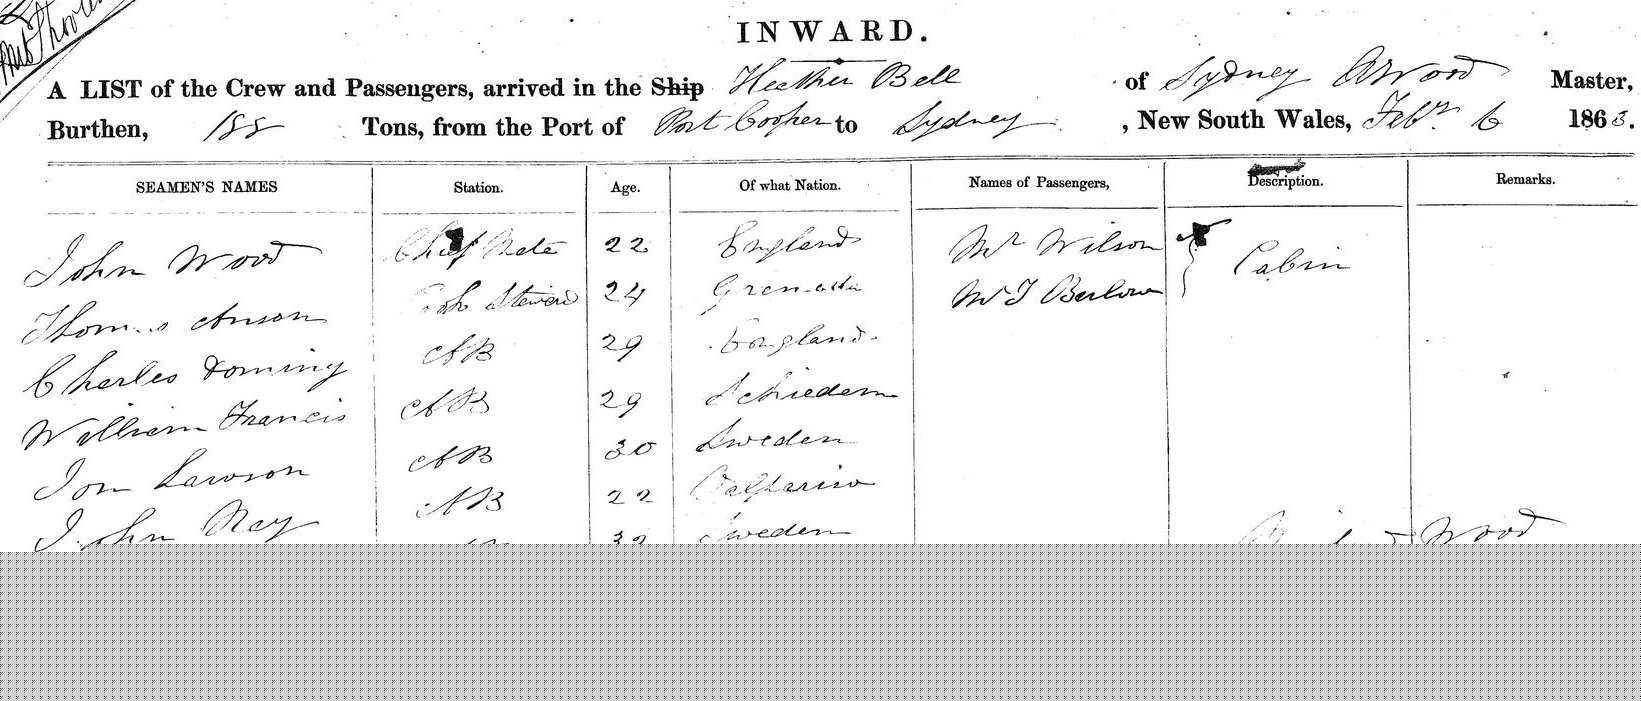 INWARD.
A LIST of the Crew and Passengers, arrived in the Ship Heather Bell of Sydney A Wood Master,
Burthen, 188 Tons, from the Port of Port Cooper to Sydney, New South Wales, Feby 6 1863.
SEAMEN'S NAMES Station. Age. Of what Nation. Names of Passengers, Description. Remarks.
John Wood Chief Mate 22 England Mr Wilson Cabin
Thomas Anson Steward 24 Mr J Barlow
Charles Doming AB 29 England
William Francis AB 29 Schiedam
Jon Lawson AB 30 Sweden
John Ney AB 22 Valpariso
32 Sweden Wood